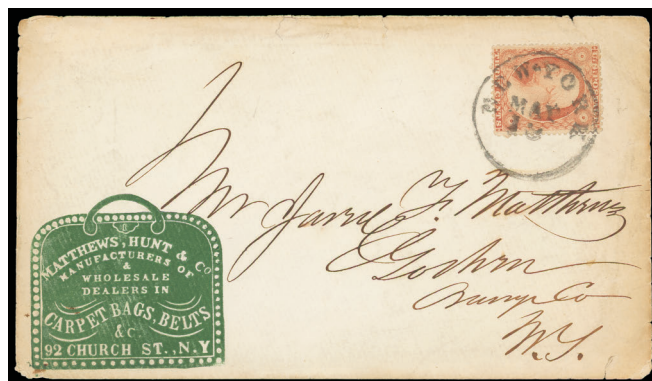 NEW-YORK
MAR
13
Mr Jame F. Matthews
Goshen
Orange Co
N.Y.
MATTHEWS, HUNT & Co
MANUFACTURERS OF
&
WHOLESALE
DEALERS IN
CARPET BAGS, BELTS
&C
92 CHURCH ST., N.Y